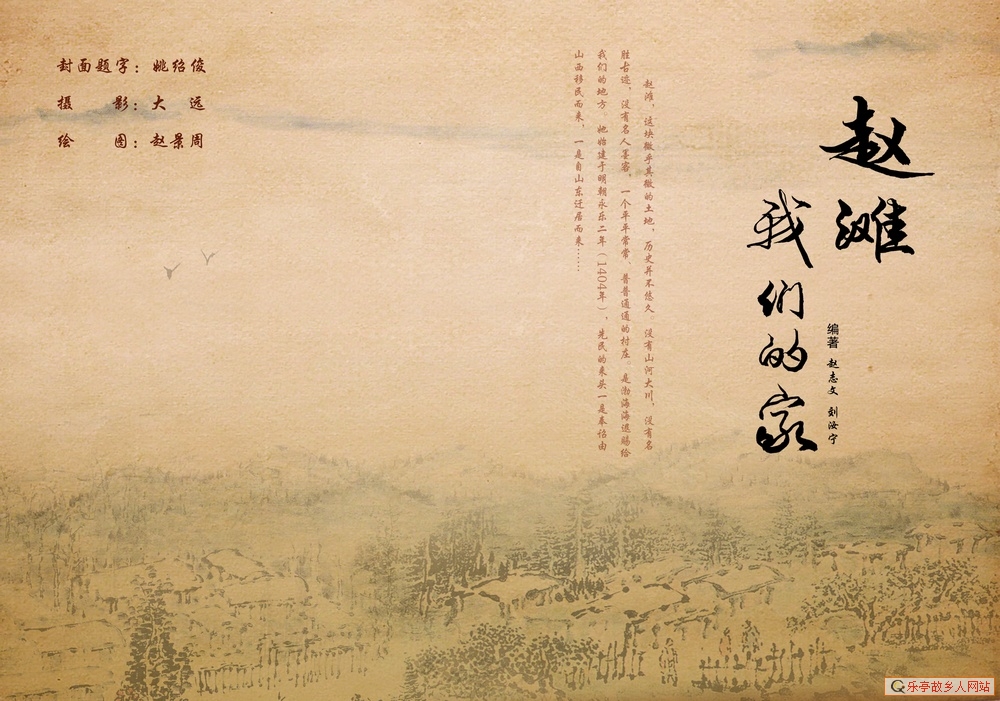 赵滩
我们的家
编著 赵志文 刘汝宁
赵滩，这块微乎其微的土地，历史并不悠久。没有山河大川，没有名
胜古迹，没有名人墨客，一个平平常常、普普通通的村庄。是渤海海退赐给
我们的地方。她始建于明朝永乐二年（1404年），先民的来头一是奉诏由
山西移民而来，一是自山东迁居而来……
封面题字：姚绍俊
摄影：大远
绘图：赵景周
乐亭故乡人网站